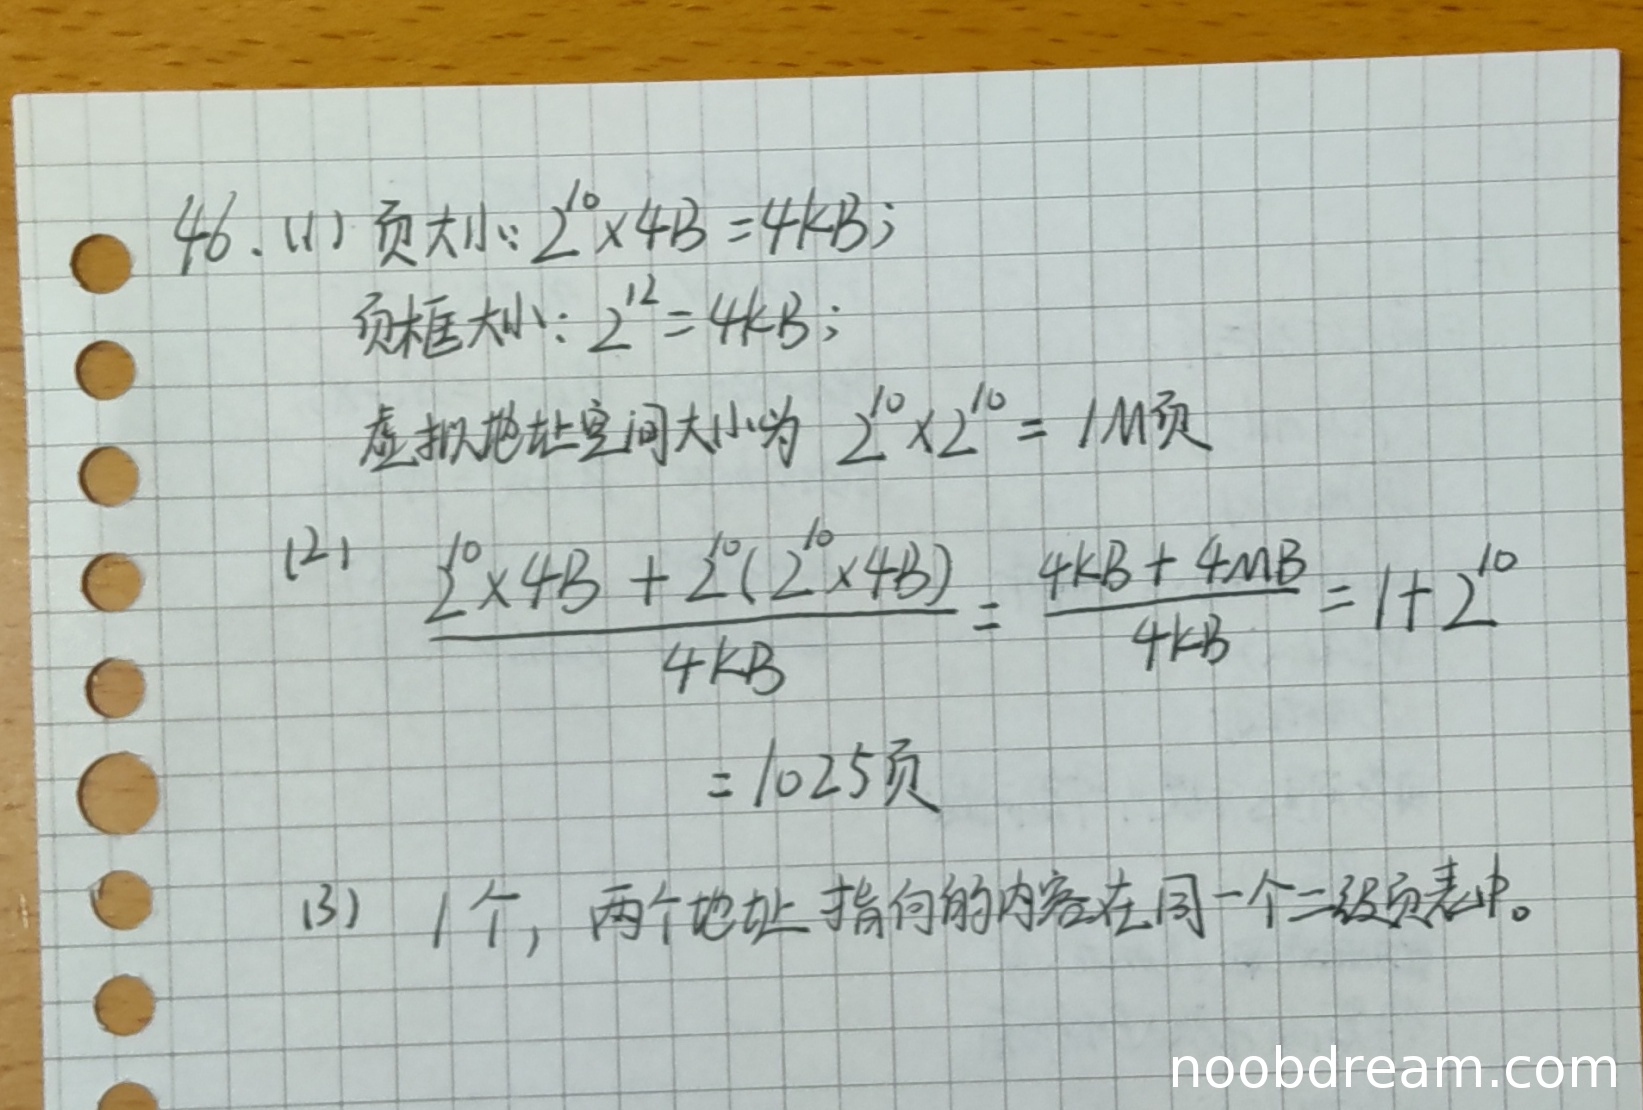 46. (1) 页大小: 2^10×4B=4KB;
页框大小: 2^12=4KB;
虚拟地址空间大小为 2^10×2^10=1M页
(2) (2^10×4B+2^10(2^10×4B))/4KB=(4KB+4MB)/4KB=1+2^10
=1025页
(3) 1个, 两个地址指向的内容在同一个二级页表中。
noobdream.com